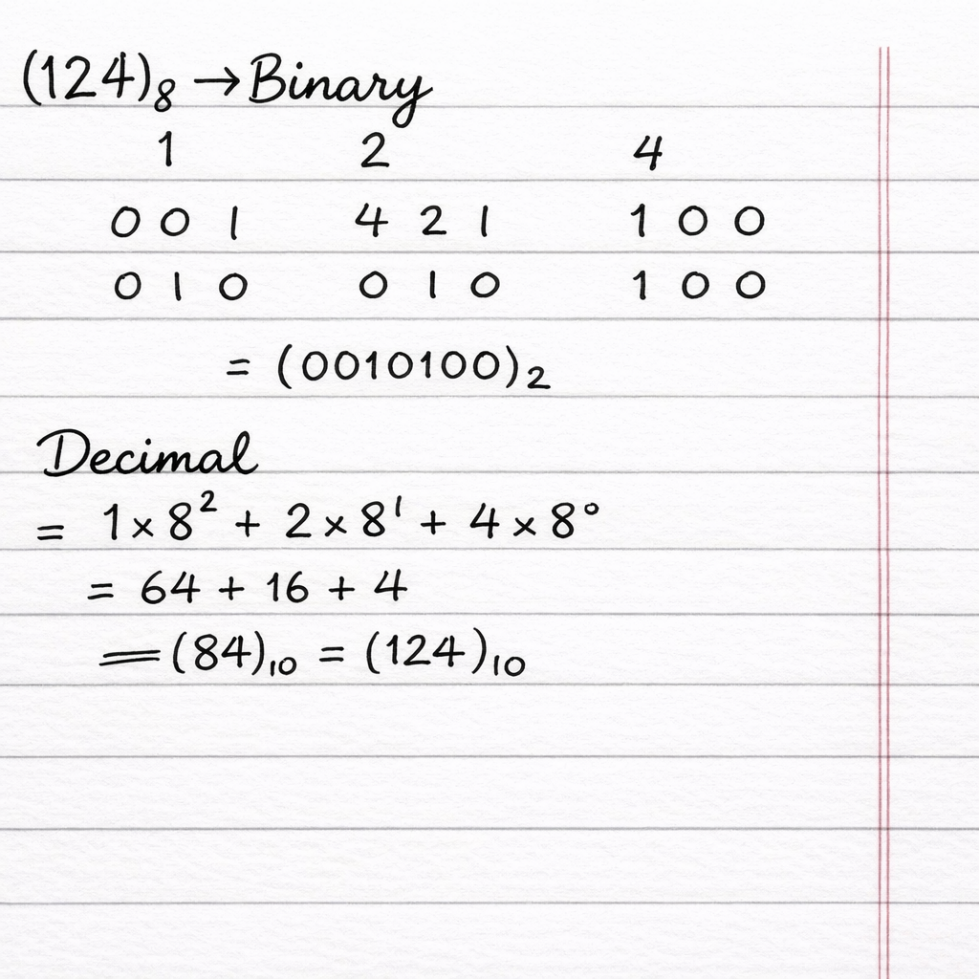 (124)₈ → Binary
1 2 4
0 0 1 4 2 1 1 0 0
0 1 0 0 1 0 1 0 0
= (0010100)₂
Decimal
= 1 × 8² + 2 × 8¹ + 4 × 8⁰
= 64 + 16 + 4
= (84)₁₀ = (124)₁₀